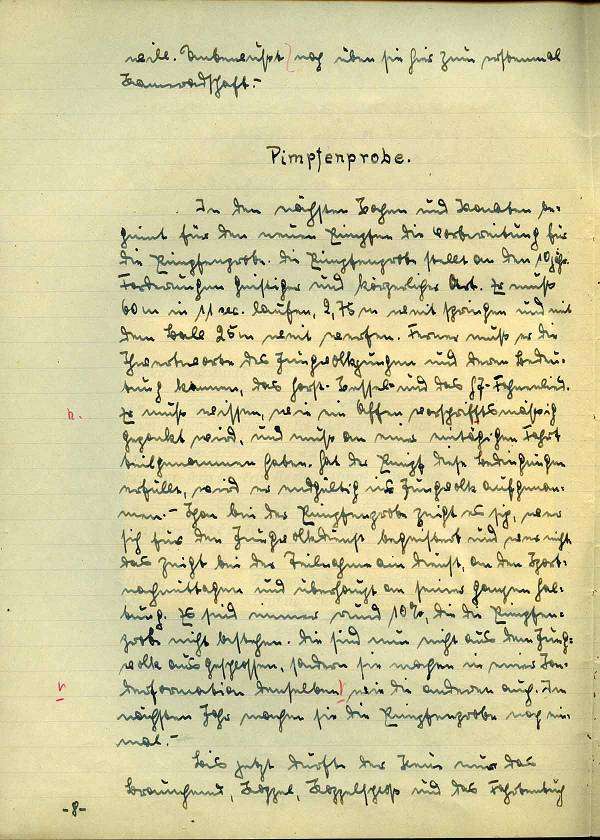 will. Unbewußt) noch üben sie hier zum erstenmal
Kameradschaft.-
Pimpfenprobe.
In den nächsten Wochen und Monaten be-
ginnt für den neuen Pimpfen die Vorbereitung für
die Pimpfenprobe. Die Pimpfenprobe stellt an den 10jähr.
Forderungen geistiger und körperlicher Art. Er muß
60 m in 11 sec. laufen, 2,75 m weit springen und mit
dem Ball 25 m weit werfen. Ferner muß er die
Schwertworte des Jungvolkjungen und deren Bedeu-
tung kennen, das Horst-Wessel- und das HJ-Fahnenlied.
Er muß wissen, wie ein Affen vorschriftsmässig
gepackt wird, und muß an einer eintägigen Fahrt
teilgenommen haben. Hat der Pimpf diese Bedingungen
erfüllt, wird er endgültig ins Jungvolk aufgenom-
men.- Schon bei der Pimpfenprobe zeigt es sich, wer
sich für den Jungvolkdienst begeistert und wer nicht
das zeigt bei der Teilnahme am Dienst, an den Sport-
nachmittagen und überhaupt an seiner ganzen Hal-
tung. Es sind immer rund 10%, die die Pimpfen-
probe nicht bestehen. Die sind nun nicht aus dem Jung-
volk ausgeschlossen, sondern sie machen in einer Son-
derformation denselben) wie die anderen auch. Im
r
nächsten Jahr machen sie die Pimpfenprobe noch ein-
mal.-
Bis jetzt durfte der Kleine nur das
Braunhemd, Koppel, Koppelschloß und das Fahrtentuch
-8-